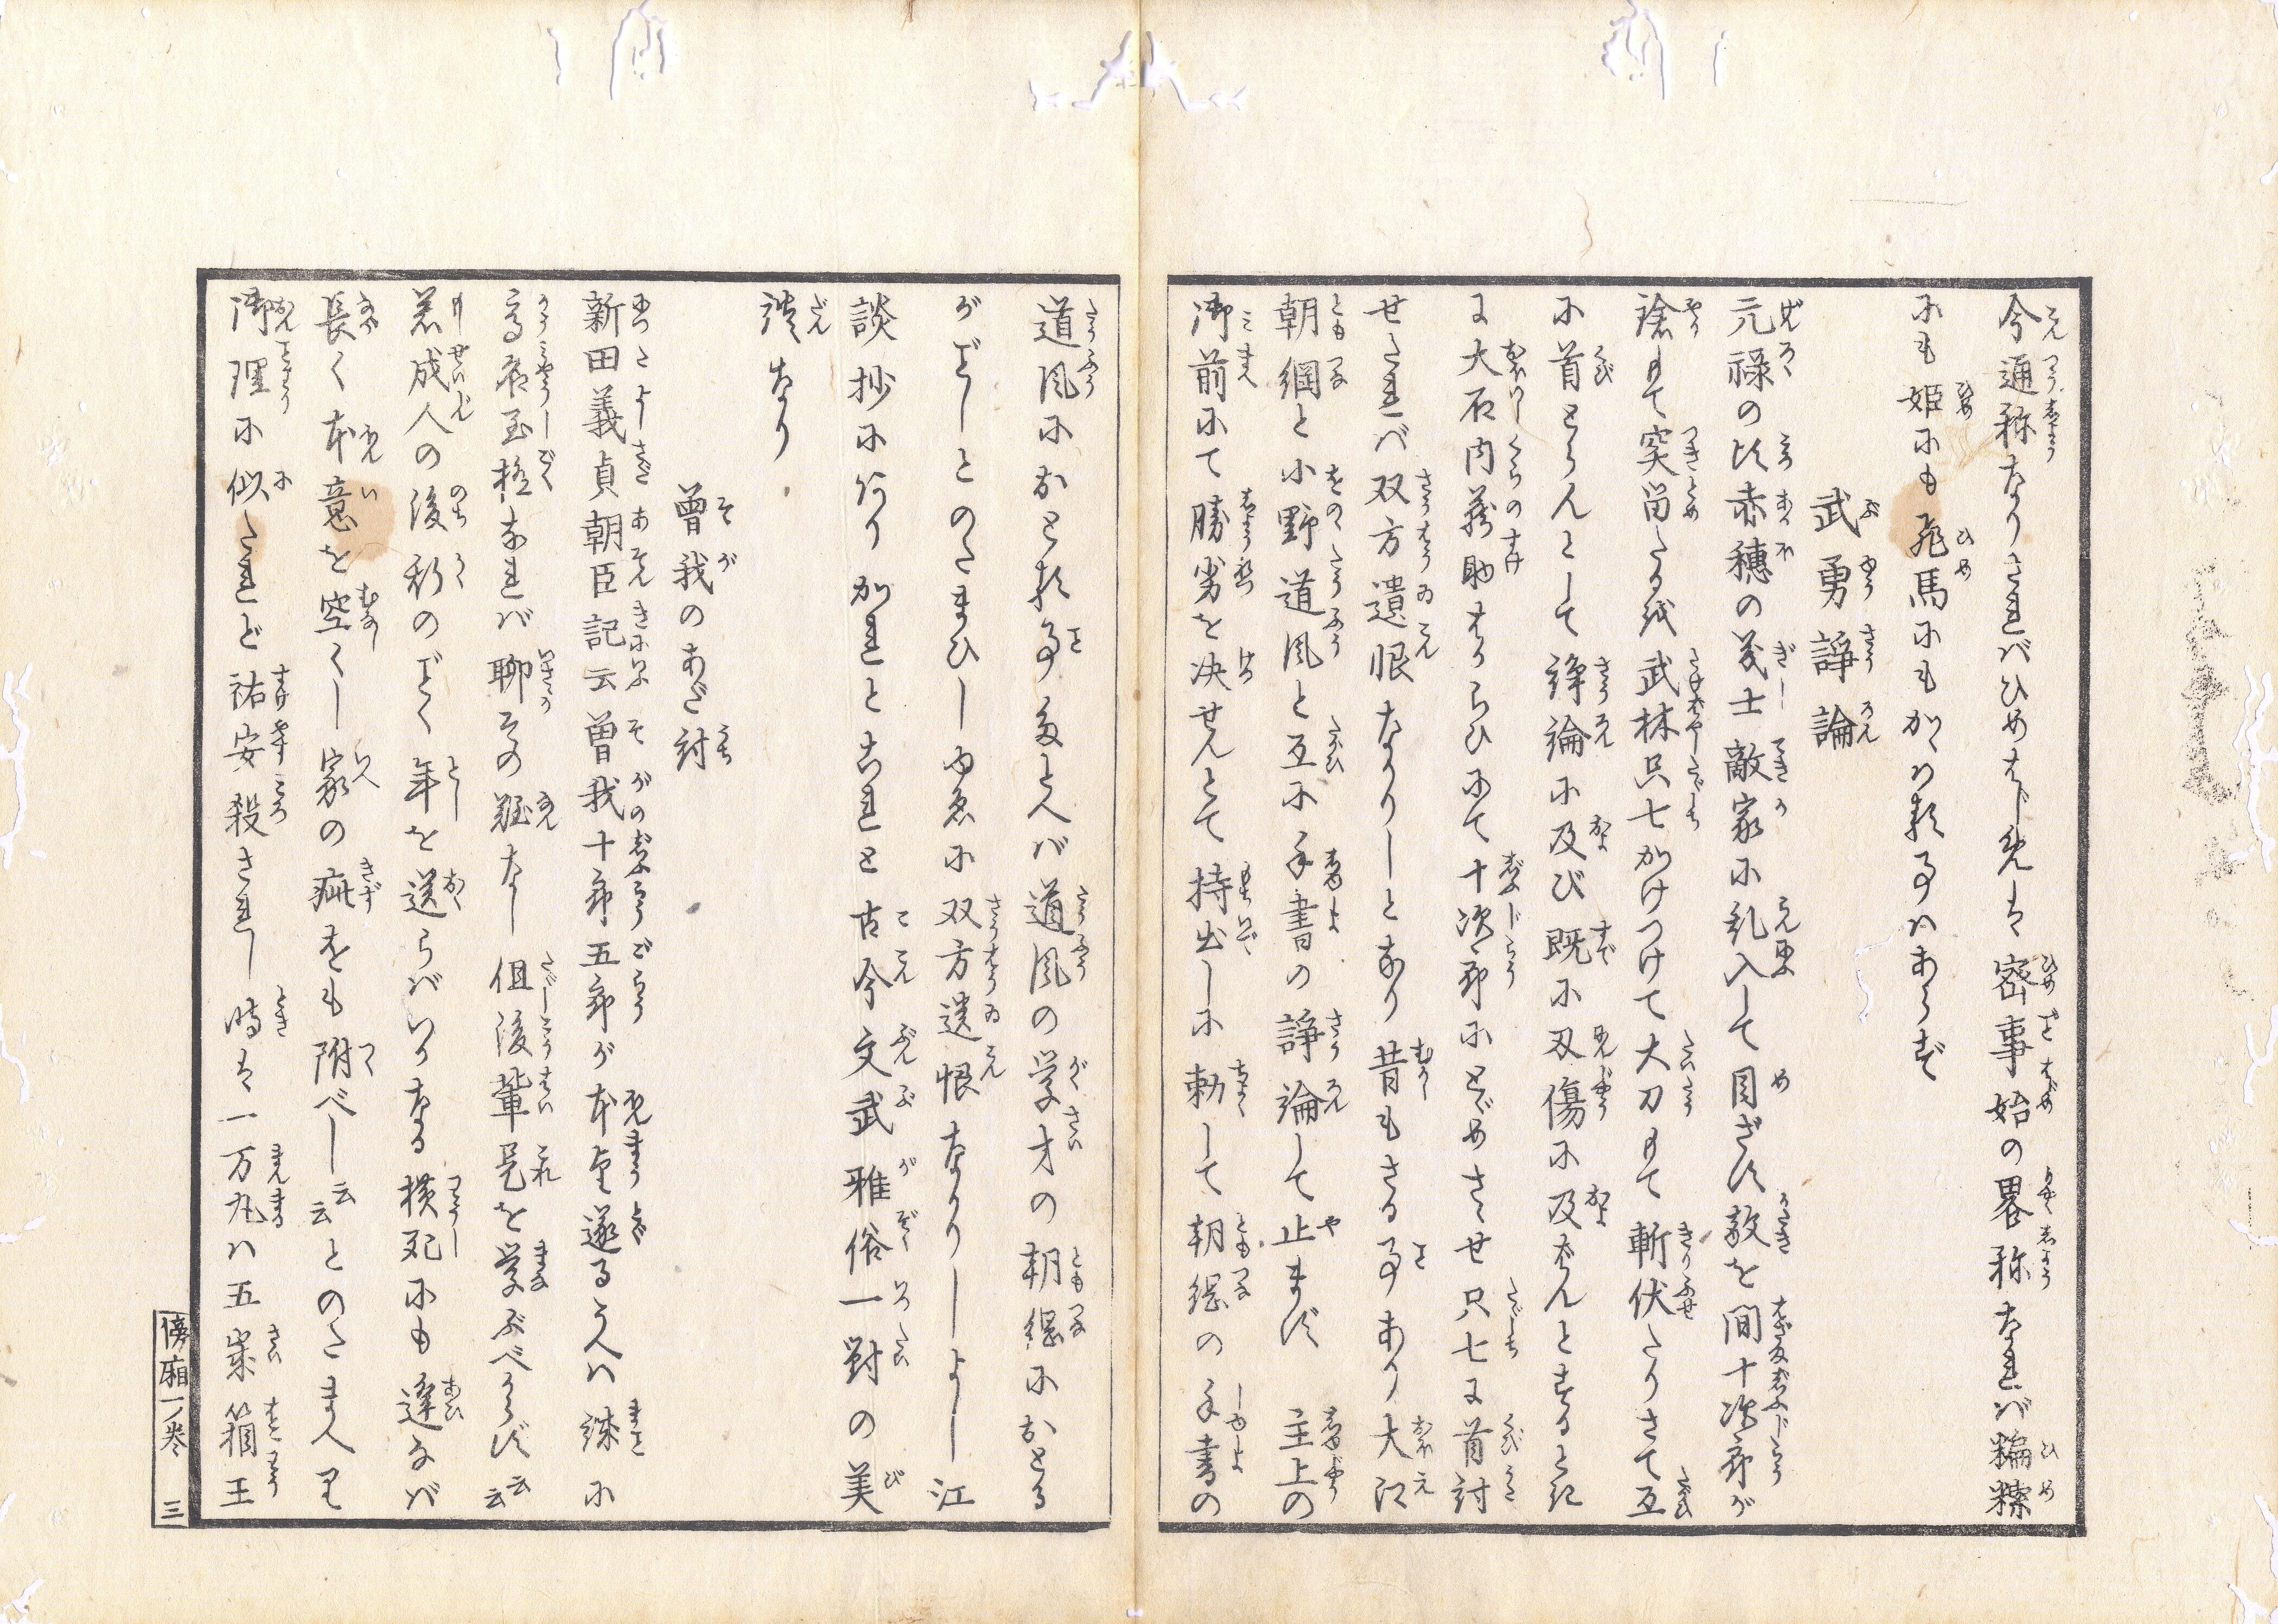 今通称なりさればひめはじめは密事始の畧称なれば糄𥻨
にも姫にも飛馬にもかゝはる事はあらず
武勇諍論
元禄の比赤穂の義士敵家に乱入して目ざす敵を間十次郎が
鎗もて突留たるを武林只七かけつけて大刀もて斬伏たりさて互
に首とらんとして諍論に及び既に刃傷に及ばんとするとき
に大石内蔵助はからひにて十次郎にとゞめさゝせ只七に首討
せたれば双方遺恨なかりしとなり昔もさる事あり大江
朝綱と小野道風と互に手書の諍論して止まず 主上の
御前にて勝劣を决せんとて持出しに勅して朝綱の手書の
道風におとる事多とへば道風の学才の朝綱におとる
がごとしとのたまひしゆゑに双方遺恨なかりしよし江
談抄にありかれとこれと古今文武雅俗一對の美
談なり
曽我のあだ討
新田義貞朝臣記云曽我十郎五郎が本望遂るうへは誠に
高名至極なれば聊その難なし但後輩是を学ぶべからず云云
若成人の後新のごとく年を送らばいかなる横死にも逢なば
長く本意を空くし家の疵をも附べし云云とのたまへり
御理に似たれど祐安殺されし時は一万丸は五歳箱王
傍廂一巻 三